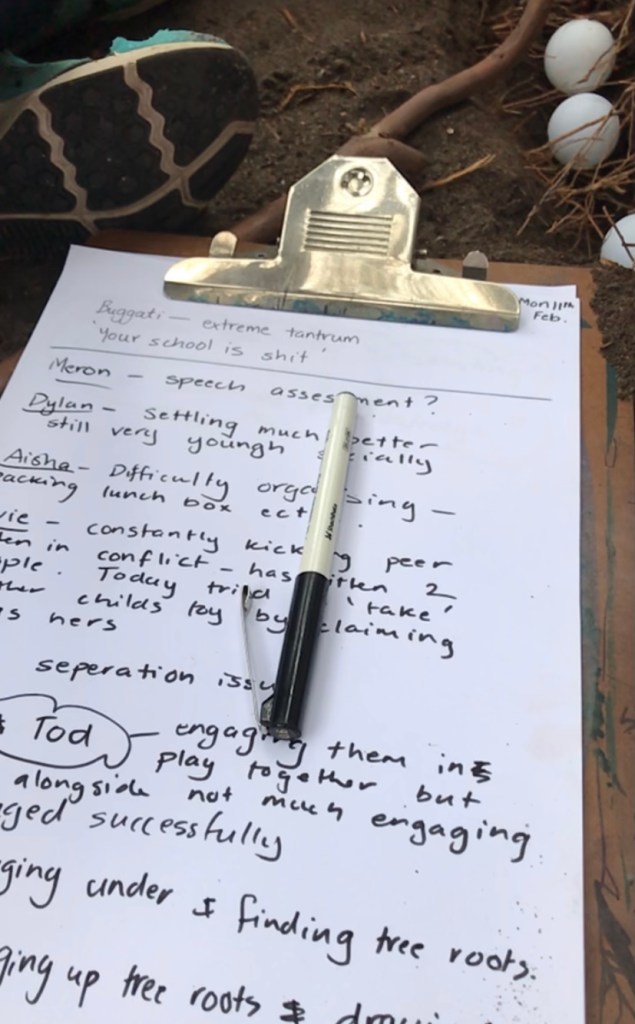 Mon 11th
Feb.
Buggati — extreme tantrum
'Your school is shit'
Meron — speech assessment?
Dylan — Settling much better
still very youngh
Aisha — Difficulty organising —
lunch box ect.
constantly kicking peer
in conflict — has 2
Today tried 'take'
childs toy by claiming
hers
seperation
Tod — engaging them in
play together but
alongside not much engaging
successfully
under & finding tree roots.
up tree roots &